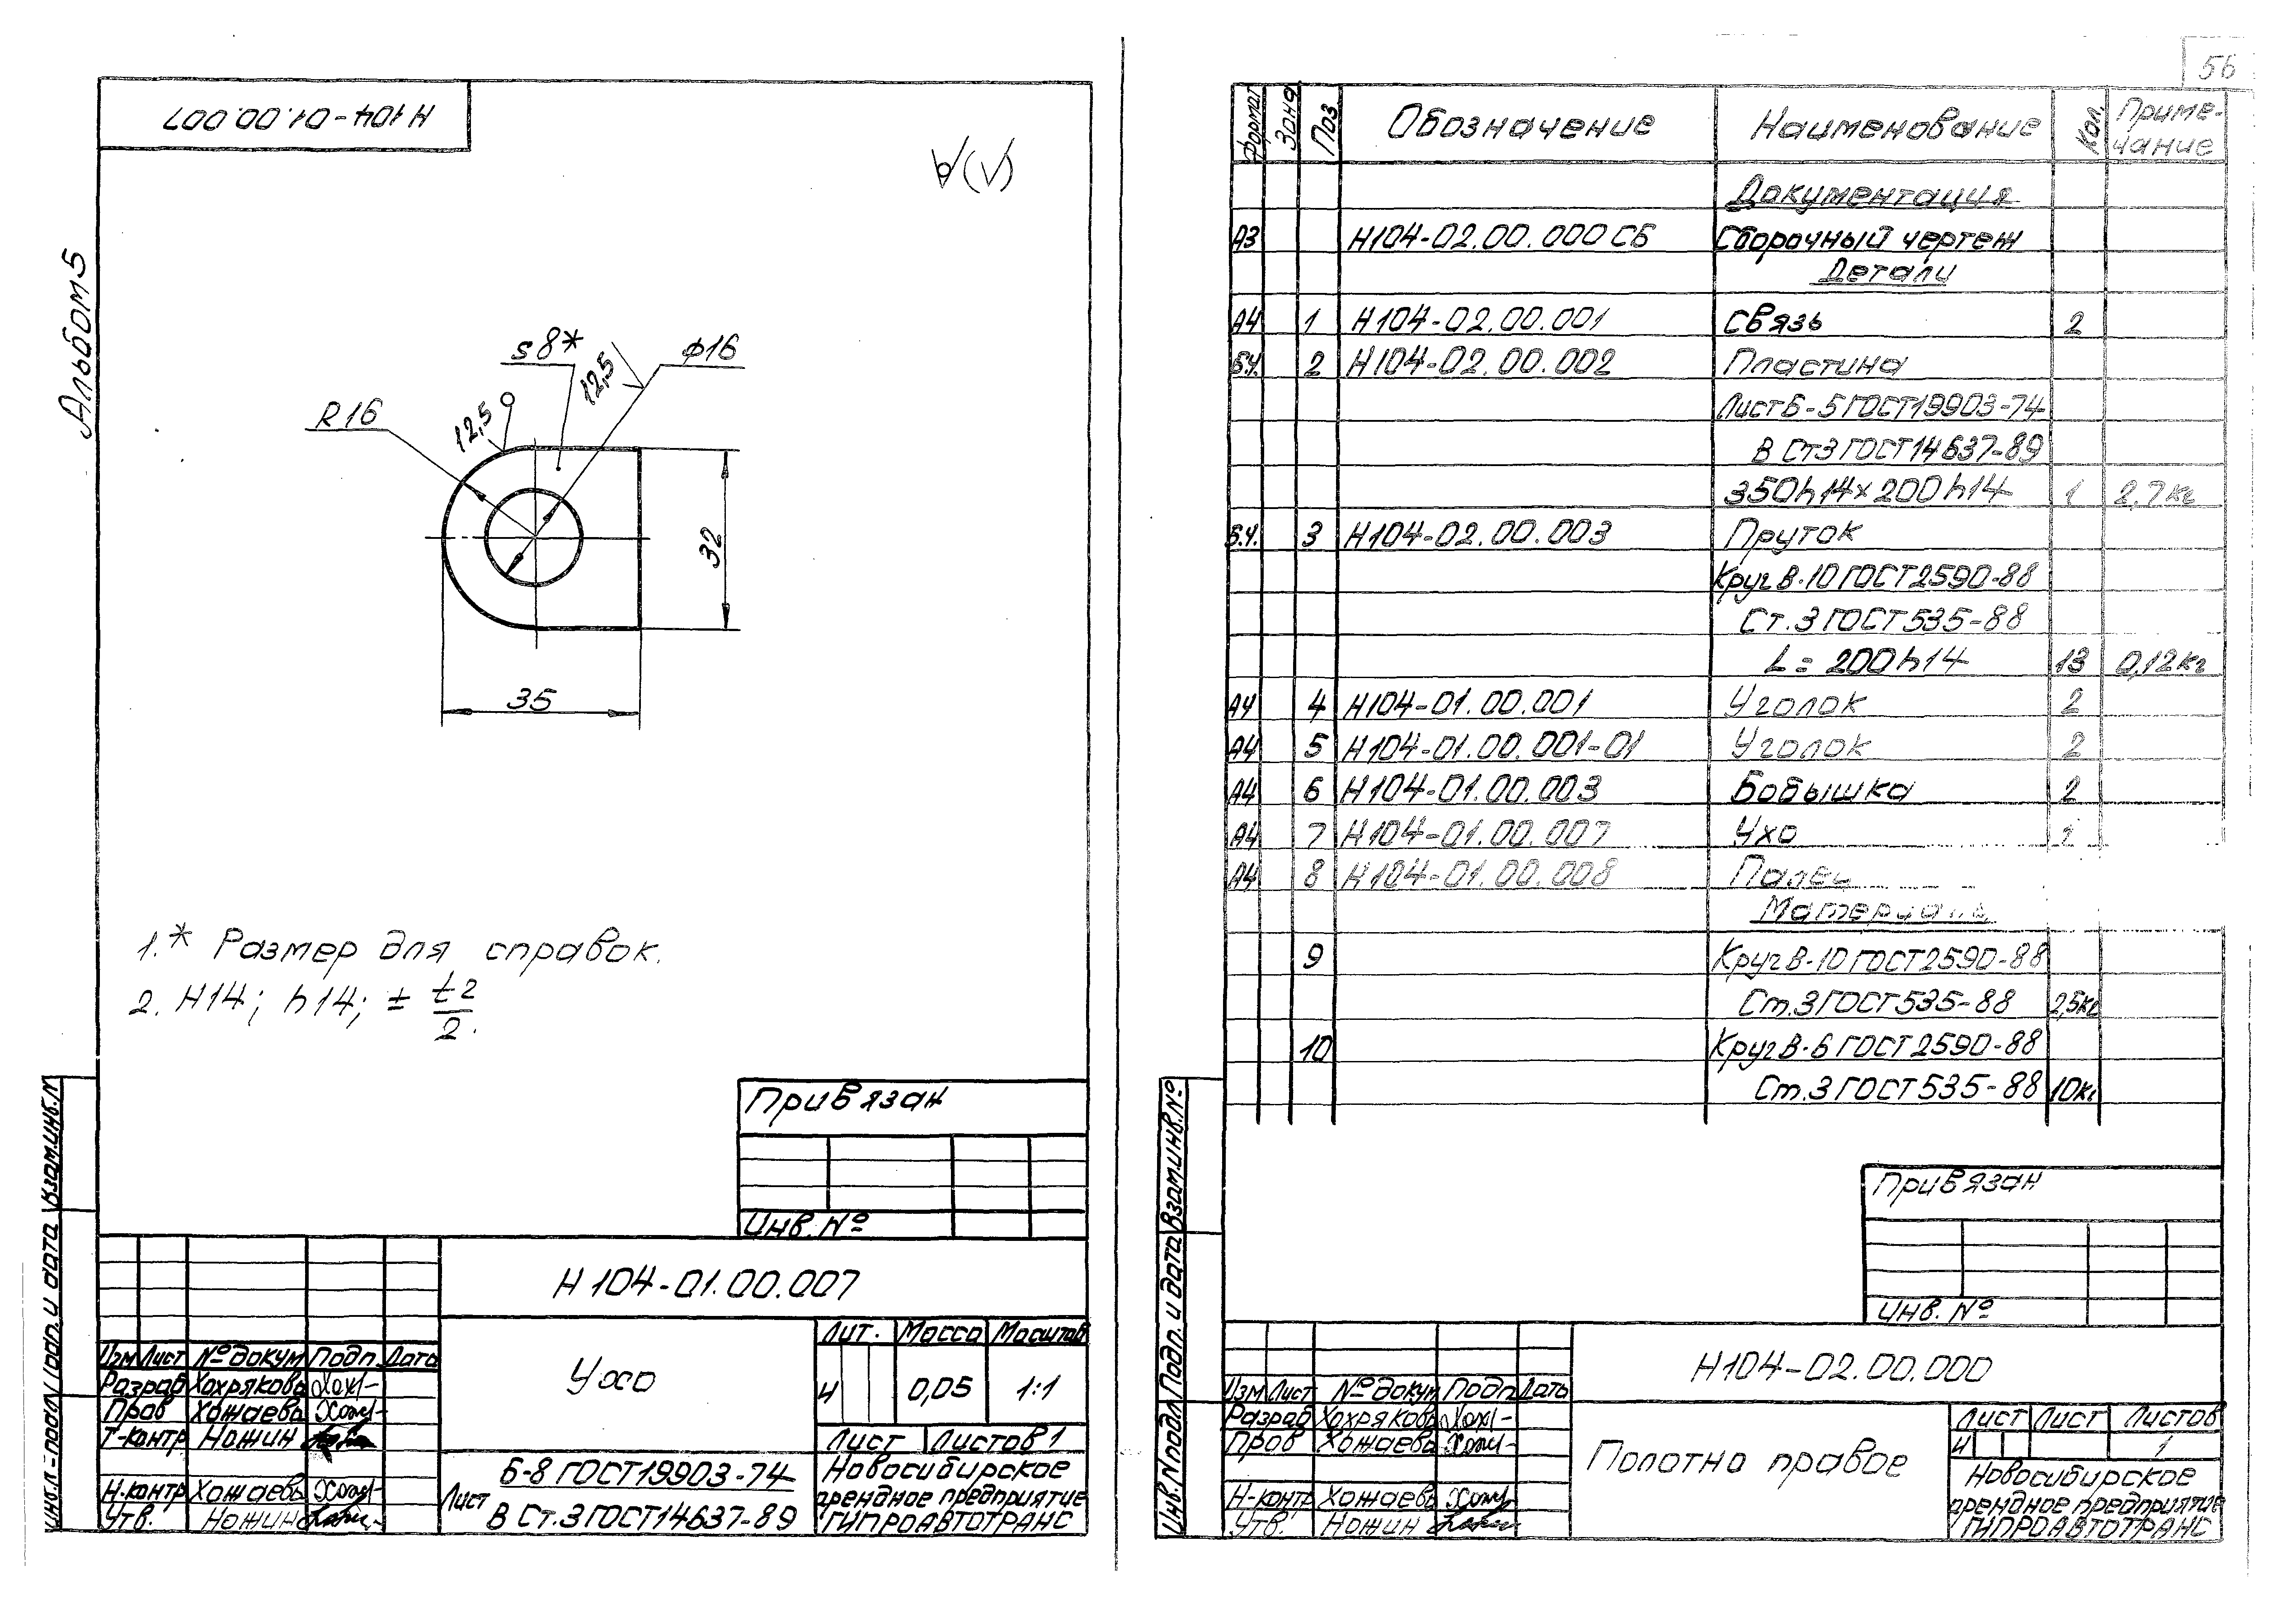 Н104-01.00.007
Альбом 5
∀(√)
s8*
⌀16
12,5
R16
12,5
32
35
1.* Размер для справок.
2. Н14; h14; ± t2/2.
Привязан
Инв. №
Н104-01.00.007
Ухо
Лит. Масса Масштаб
И 0,05 1:1
Лист Листов 1
Изм Лист № докум Подп. Дата
Разраб Хохрякова
Пров Хожаева
Т-контр Ножин
Н.контр Хожаева
Утв. Ножин
Лист Б-8 ГОСТ19903-74
В Ст.3 ГОСТ14637-89
Новосибирское
арендное предприятие
ГИПРОАВТОТРАНС
Подп. и дата Взам.инв.N
56
Формат Зона Поз Обозначение Наименование Кол. Приме-
чание
Документация
А3 Н104-02.00.000 СБ Сборочный чертеж
Детали
А4 1 Н104-02.00.001 Связь 2
Б.Ч. 2 Н104-02.00.002 Пластина
Лист Б-5 ГОСТ19903-74
В Ст3 ГОСТ14637-89
350h14×200h14 1 2,7кг
Б.Ч. 3 Н104-02.00.003 Пруток
Круг В-10 ГОСТ2590-88
Ст.3 ГОСТ535-88
L=200h14 13 0,12кг
А4 4 Н104-01.00.001 Уголок 2
А4 5 Н104-01.00.001-01 Уголок 2
А4 6 Н104-01.00.003 Бобышка 2
А4 7 Н104-01.00.007 Ухо
А4 8 Н104-01.00.008 Палец
Материалы
9 Круг В-10 ГОСТ2590-88
Ст.3 ГОСТ535-88 2,5кг
10 Круг В-6 ГОСТ2590-88
Ст.3 ГОСТ535-88 10кг
Привязан
Инв. №
Н104-02.00.000
Изм Лист № докум Подп Дата
Разраб Хохрякова
Пров Хожаева
Н-контр Хожаева
Утв. Ножин
Полотно правое
Лист Лист Листов
И 1
Новосибирское
арендное предприятие
ГИПРОАВТОТРАНС
Инв.N подл Подп. и дата Взам.инв.№